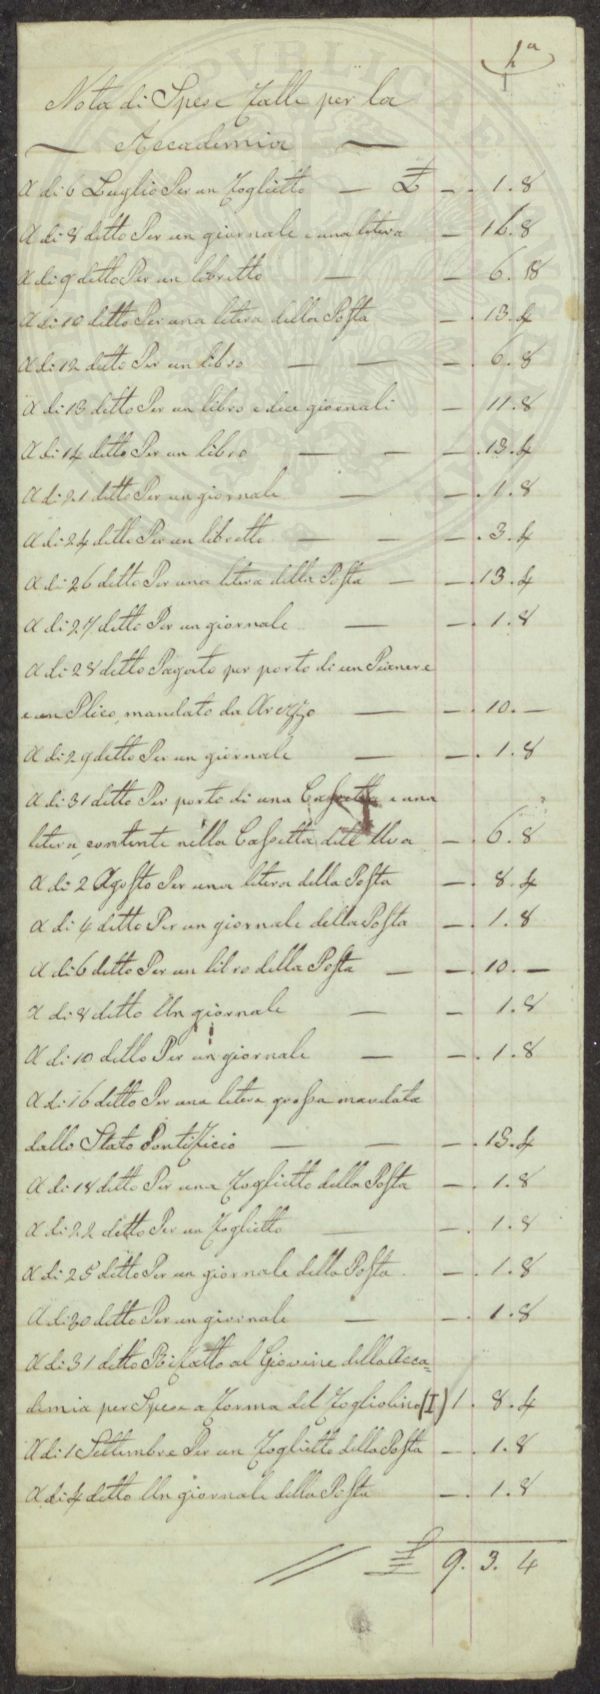 h.ª
Nota di Spese Fatte per la
Accademia
A di 6 Luglio Per un Foglietto — £ — . 1. 8
A di 8 ditto Per un giornale e una litera — 16. 8
A di 9 ditto Per un libretto — — 6. 8
A di 10 ditto Per una litera della Posta — . 13. 4
A di 12 ditto Per un libro — — — . 6. 8
A di 13 ditto Per un libro e dice giornali — 11. 8
A di 14 ditto Per un libro — — — . 13. 4
A di 21 ditto Per un giornale — — . 1. 8
A di 24 ditto Per un libretto — — — . 3. 4
A di 26 ditto Per una litera della Posta — — . 13. 4
A di 27 ditto Per un giornale — — . 1. 8
A di 28 ditto Pagato per porto di un
e un Plico, mandato da Arezzo — — . 10. —
A di 29 ditto Per un giornale — — . 1. 8
A di 31 ditto Per porto di una Cassetta e una
litera, contente nella Cassetta dell Uva — . 6. 8
A di 2 Agosto Per una litera della Posta — . 8. 4
A di 4 ditto Per un giornale della Posta — . 1. 8
A di 6 ditto Per un libro della Posta — — . 10. —
A di 8 ditto Un giornale — — 1. 8
A di 10 ditto Per un giornale — — . 1. 8
A di 16 ditto Per una litera grossa mandata
dallo Stato Pontificio — — — . 13. 4
A di 18 ditto Per una Foglietto della Posta — . 1. 8
A di 22 ditto Per un Foglietto — — . 1. 8
A di 25 ditto Per un giornale della Posta — . 1. 8
A di 30 ditto Per un giornale — — . 1. 8
A di 31 ditto Rifatto al Giovine della Acca=
demia per Spese a forma del Fogliolino (I) 1. 8. 4
A di 1 Settembre Per un Foglietto della Posta — . 1. 8
A di 4 ditto Un giornale della Posta — . 1. 8
// £ 9. 3. 4